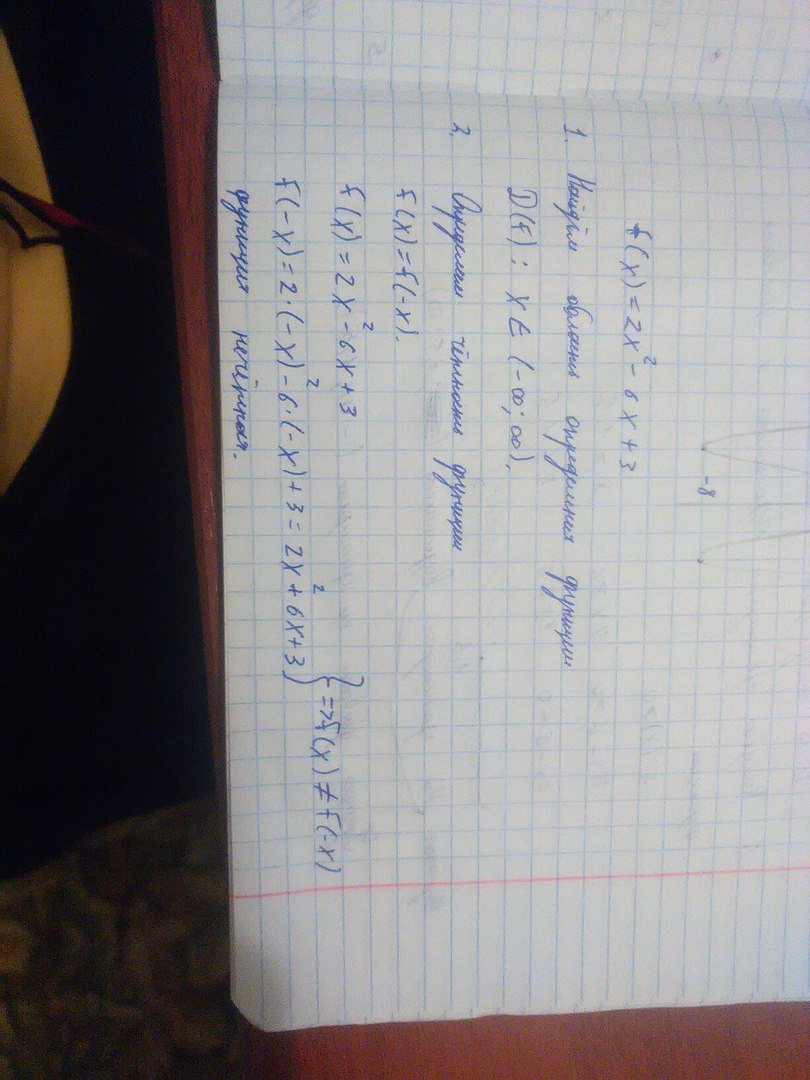 -8
f(x) = 2x² - 6x + 3
1. Найдём область определения функции
D(f): x ∈ (-∞; ∞).
2. Определим чётность функции
f(x) = f(-x).
f(x) = 2x² - 6x + 3
f(-x) = 2·(-x)² - 6·(-x) + 3 = 2x² + 6x + 3 } => f(x) ≠ f(-x)
функция нечётная.